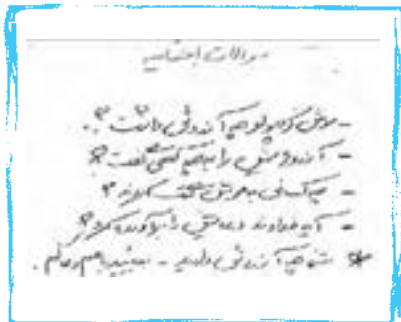 سوالات احتمالی
- موش کوچولو چه آرزوئی داشت؟
- آرزویش را به چه کسی گفت؟
- چه کسانی به موش کمک کردند؟
- آیا خداوند دعایش را برآورده کرد؟
* شما چه آرزوئی دارید - بیایید با هم دعا کنیم.